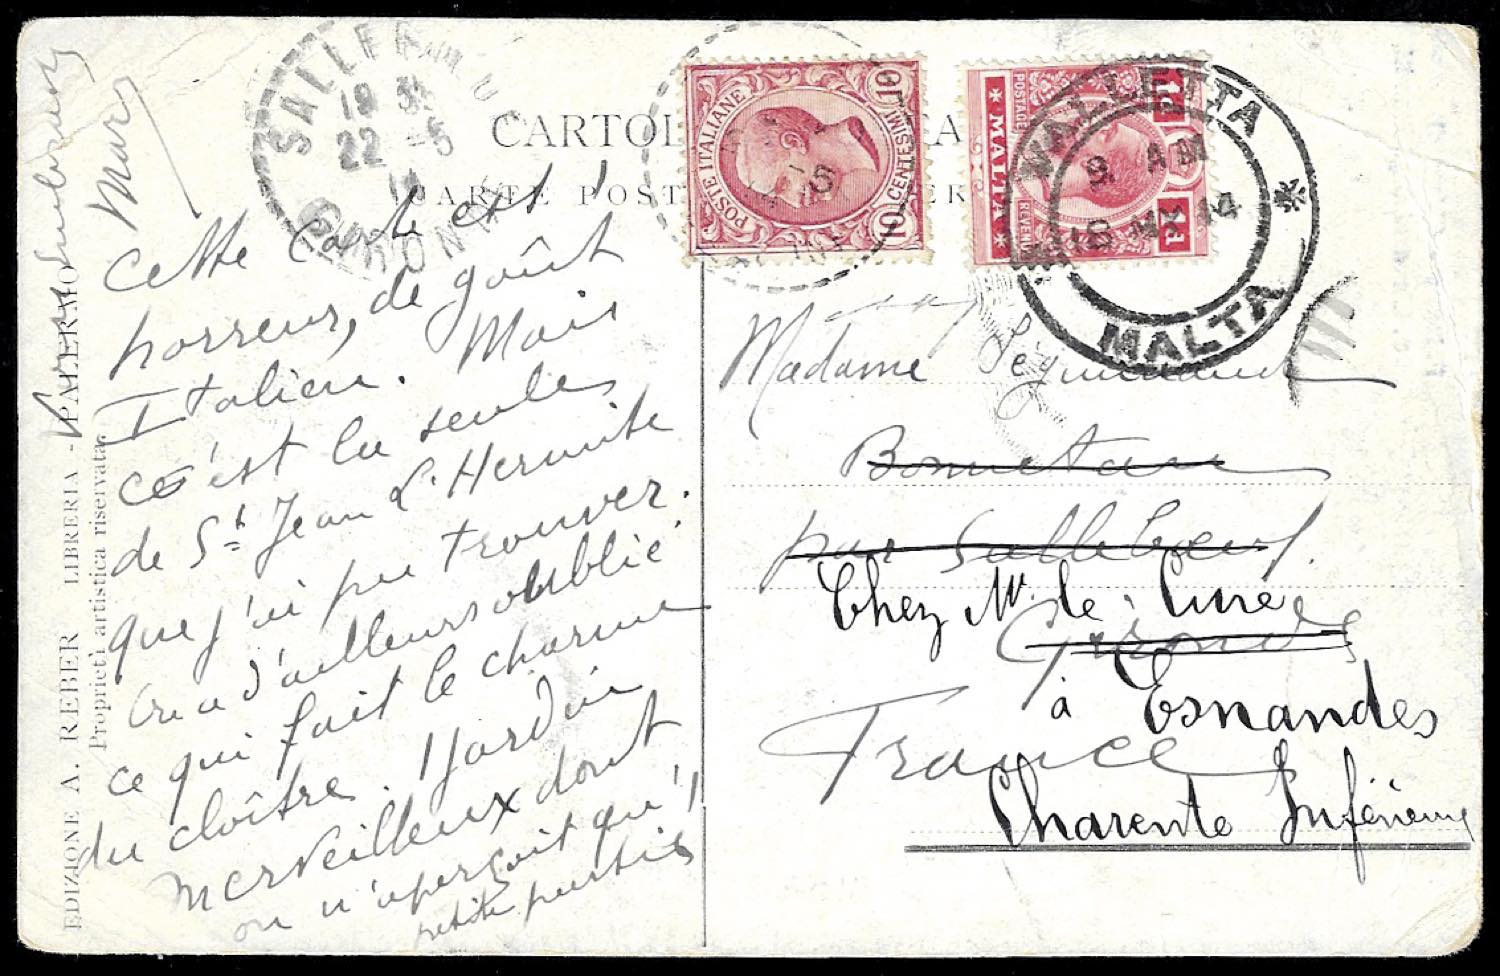 CARTOL
CARTE POST
SALLE
19 35
22 - 5
14
GIRONDE
POSTE ITALIANE
10
CENTESIMI
10
POSTAGE
MALTA
REVENUE
1d
1d
VALLETTA
9 AM
MY 14
MALTA
EDIZIONE A. REBER LIBRERIA - PALERMO
Proprietà artistica riservata.
Mur
Cette carte est
horreur, de goût
Italien. Mais
c'est la seule
de St Jean L'Hermite
que j'ai pu trouver.
On a d'ailleurs oublié
ce qui fait le charme
du cloître. Jardin
merveilleux dont
on n'aperçoit qu'1
petite partie
Madame
Bonnetan
par Sallebœuf.
Gironde
France
Chez Mr. le Curé
à Esnandes
Charente Inférieure